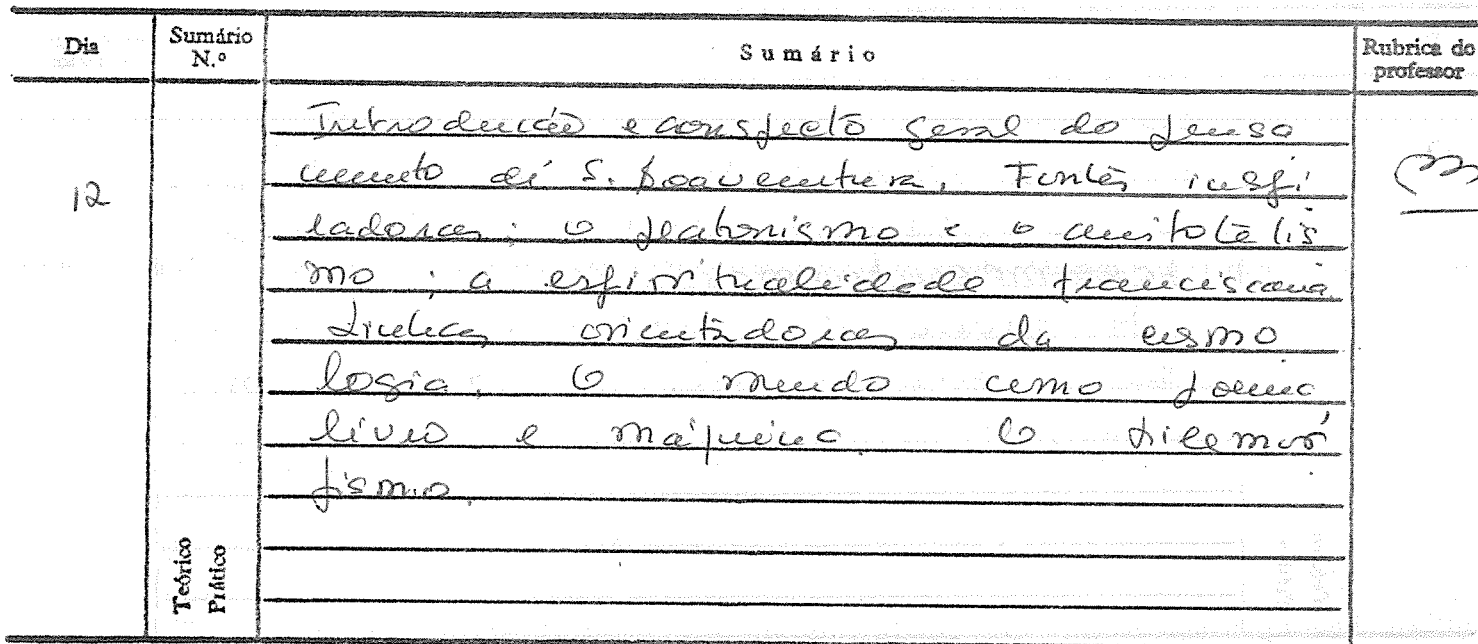 Dia
Sumário N.º
Sumário
Rubrica do professor
12
Introdução e conspecto geral do pensa
mento de S. Boaventura. Fontes inspi
radoras: o platonismo e o aristotélis
mo; a espiritualidade franciscana.
Linhas orientadoras da cosmo
logia. O mundo como poema
livro e máquina. O hilemór
fismo.
Teórico
Prático